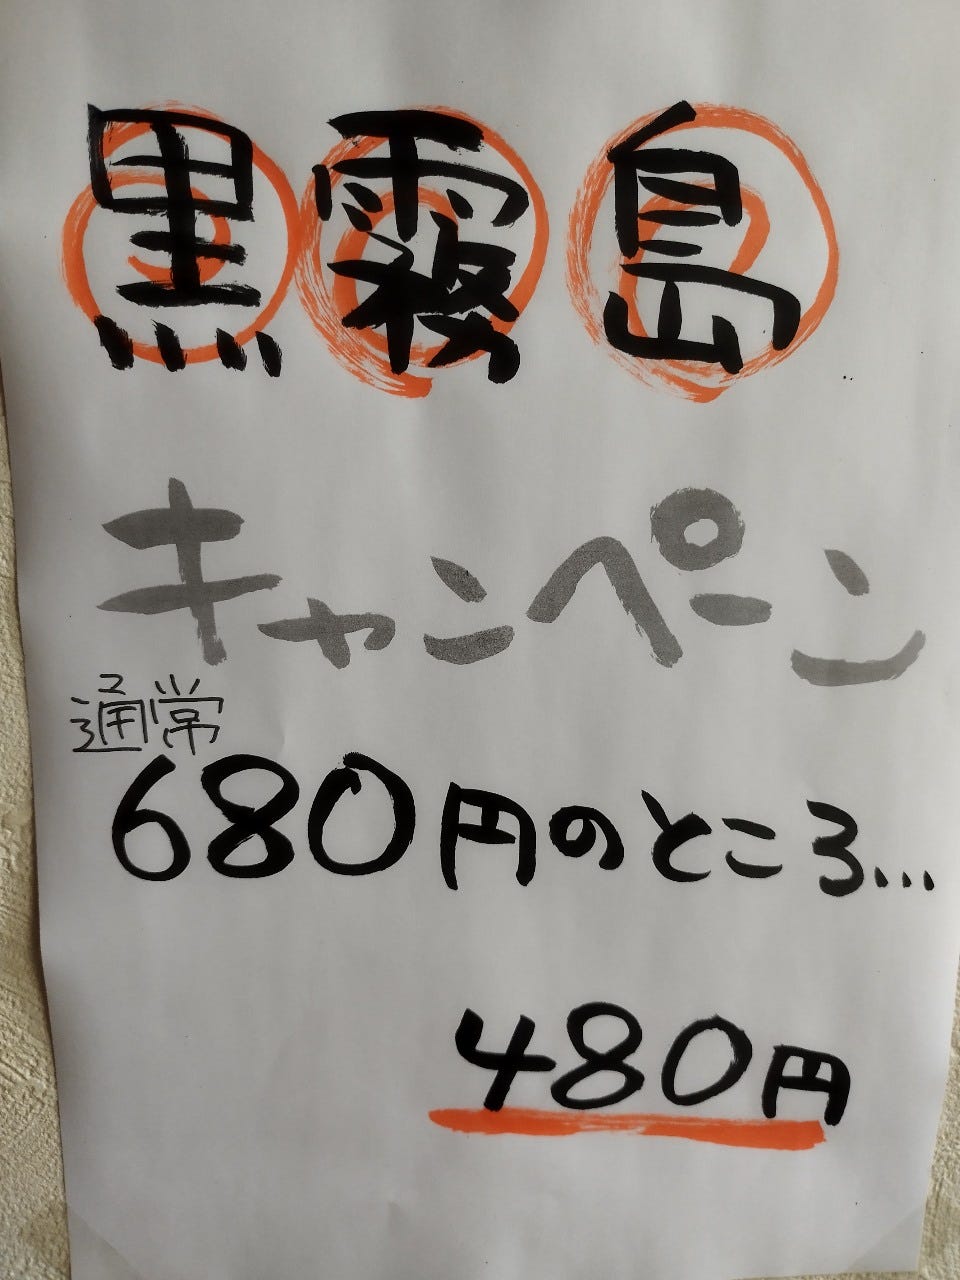 黒霧島
キャンペーン
通常
680円のところ...
480円